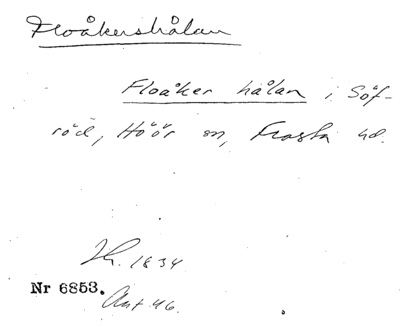 Floåkershålan
Floåker hålan i Söf-
röd, Höör sn, Frosta hd.
1834
Nr 6853.
Ant 46.